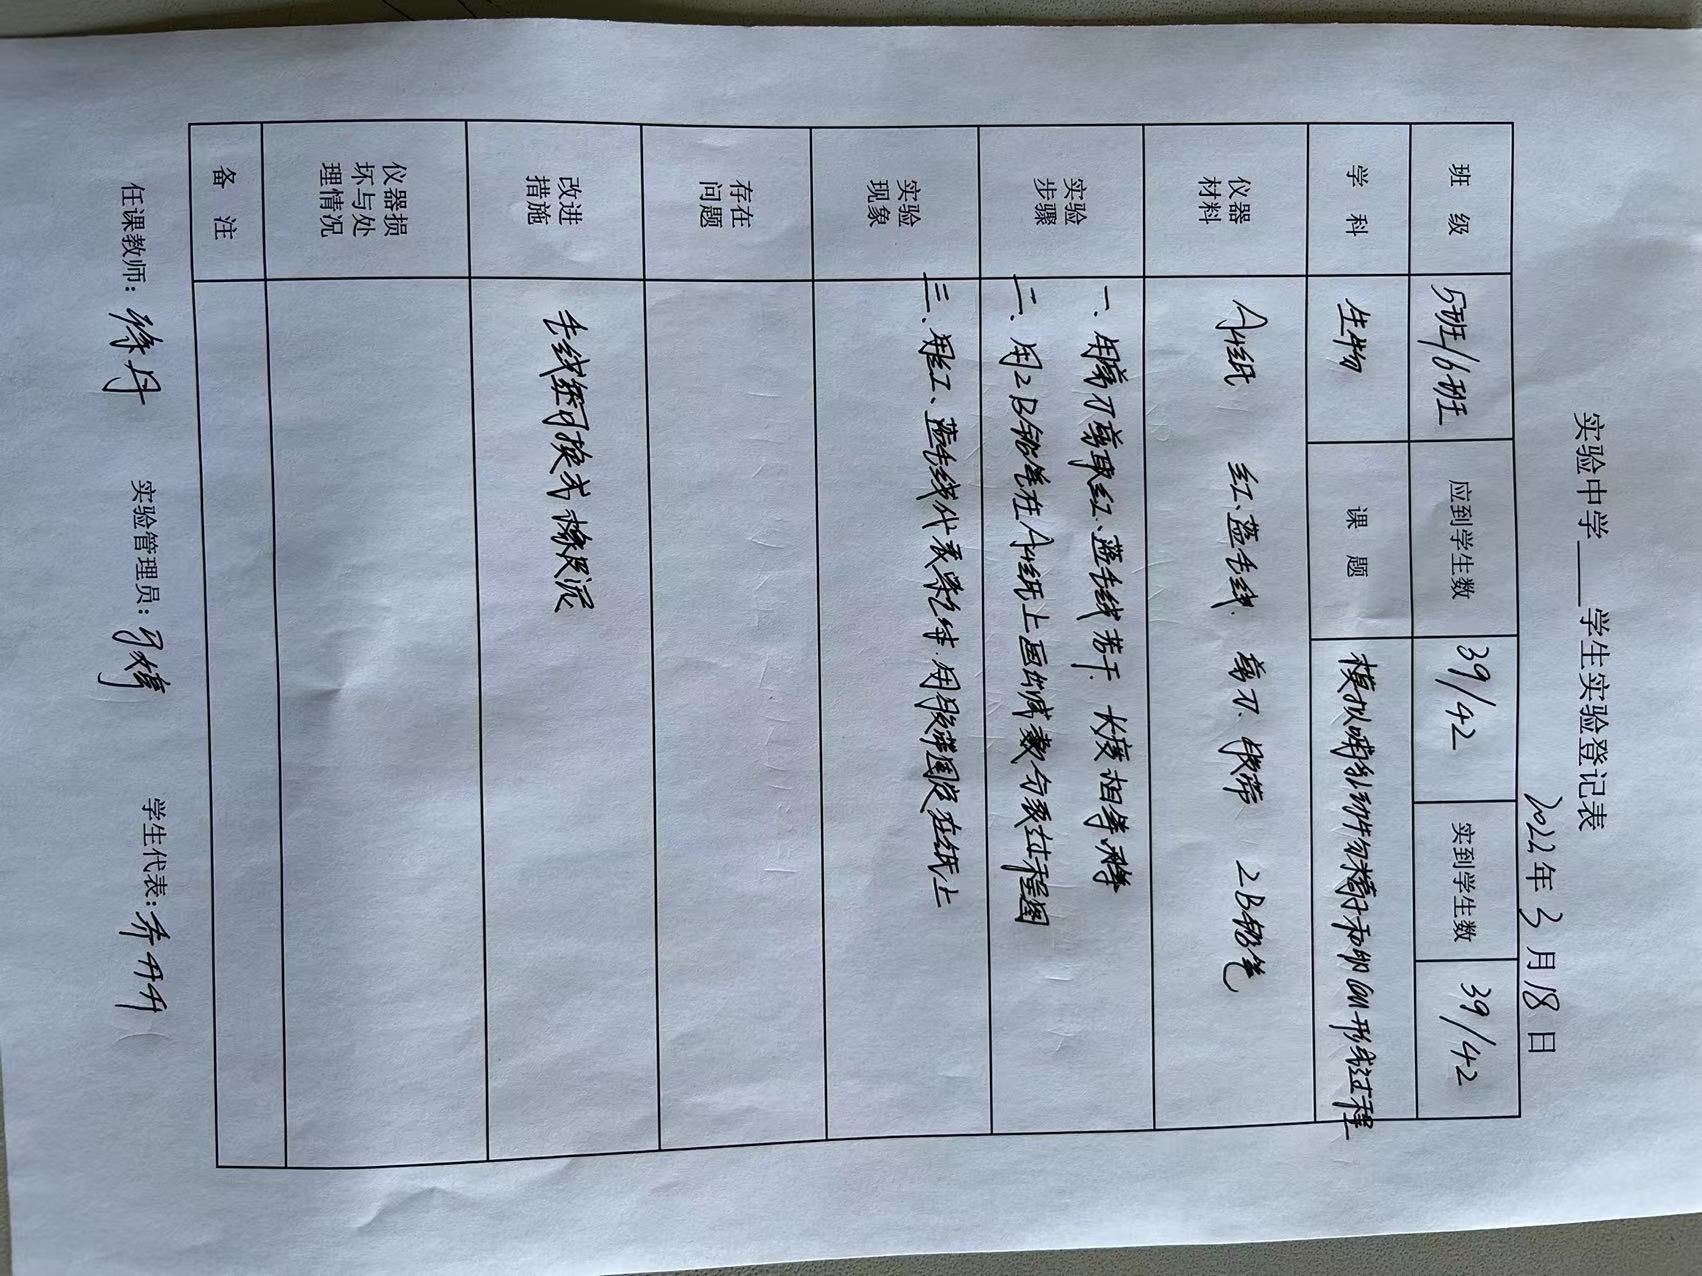 实验中学____学生实验登记表
2022年 3月 18日
班 级 5班/6班 应到学生数 39/42 实到学生数 39/42
学 科 生物 课 题 模拟哺乳动物精子和卵cell形成过程
仪器材料 A4纸 红、蓝毛线. 剪刀、胶带 2B铅笔
实验步骤 一. 用剪刀剪取红、蓝毛线若干. 长度相等
二、用2B铅笔在A4纸上画出减数分裂过程图
三、用红、蓝毛线代表染色体. 用胶带固定在纸上
实验现象
存在问题
改进措施 毛线等可换成橡皮泥
仪器损坏与处理情况
备 注
任课教师: 徐丹 实验管理员: 学生代表: 乔丹丹